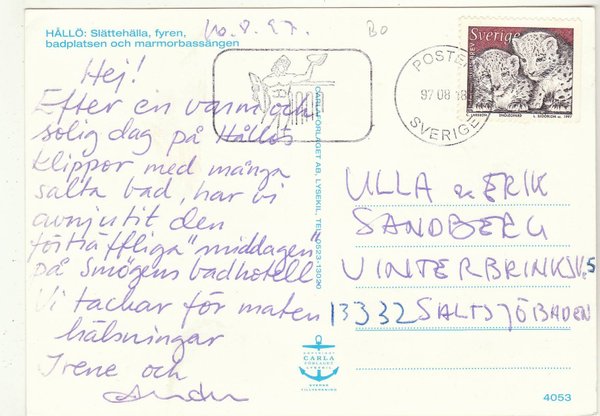 HÅLLÖ: Slättehälla, fyren,
badplatsen och marmorbassängen
10.8.97.
BO
Hej!
Efter en varm och
solig dag på Hållös
klippor med många
salta bad, har vi
avnjutit den
förträffliga "middagen"
på Smögens badhotell
Vi tackar för maten
hälsningar
Irene och
CARLAFÖRLAGET AB, LYSEKIL, TEL. 0523-13030
POSTEN
97 08 13
SVERIGE
Sverige
BREV
SNÖLEOPARD
1997
ULLA & ERIK
SANDBERG
VINTERBRINKSV. 5
13332 SALTSJÖBADEN
COPYRIGHT
CARLA
FÖRLAGET
LYSEKIL
SVENSK
TILLVERKNING
4053